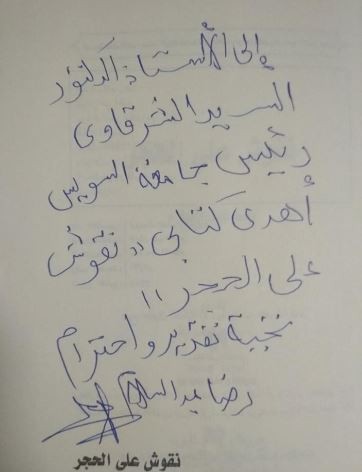 إلى الأستاذ الدكتور
السيد الشرقاوى
رئيس جامعة السويس
أهدى كتابى "نقوش
على الحجر"
تحية تقدير واحترام
رضا عبد السلام
نقوش على الحجر